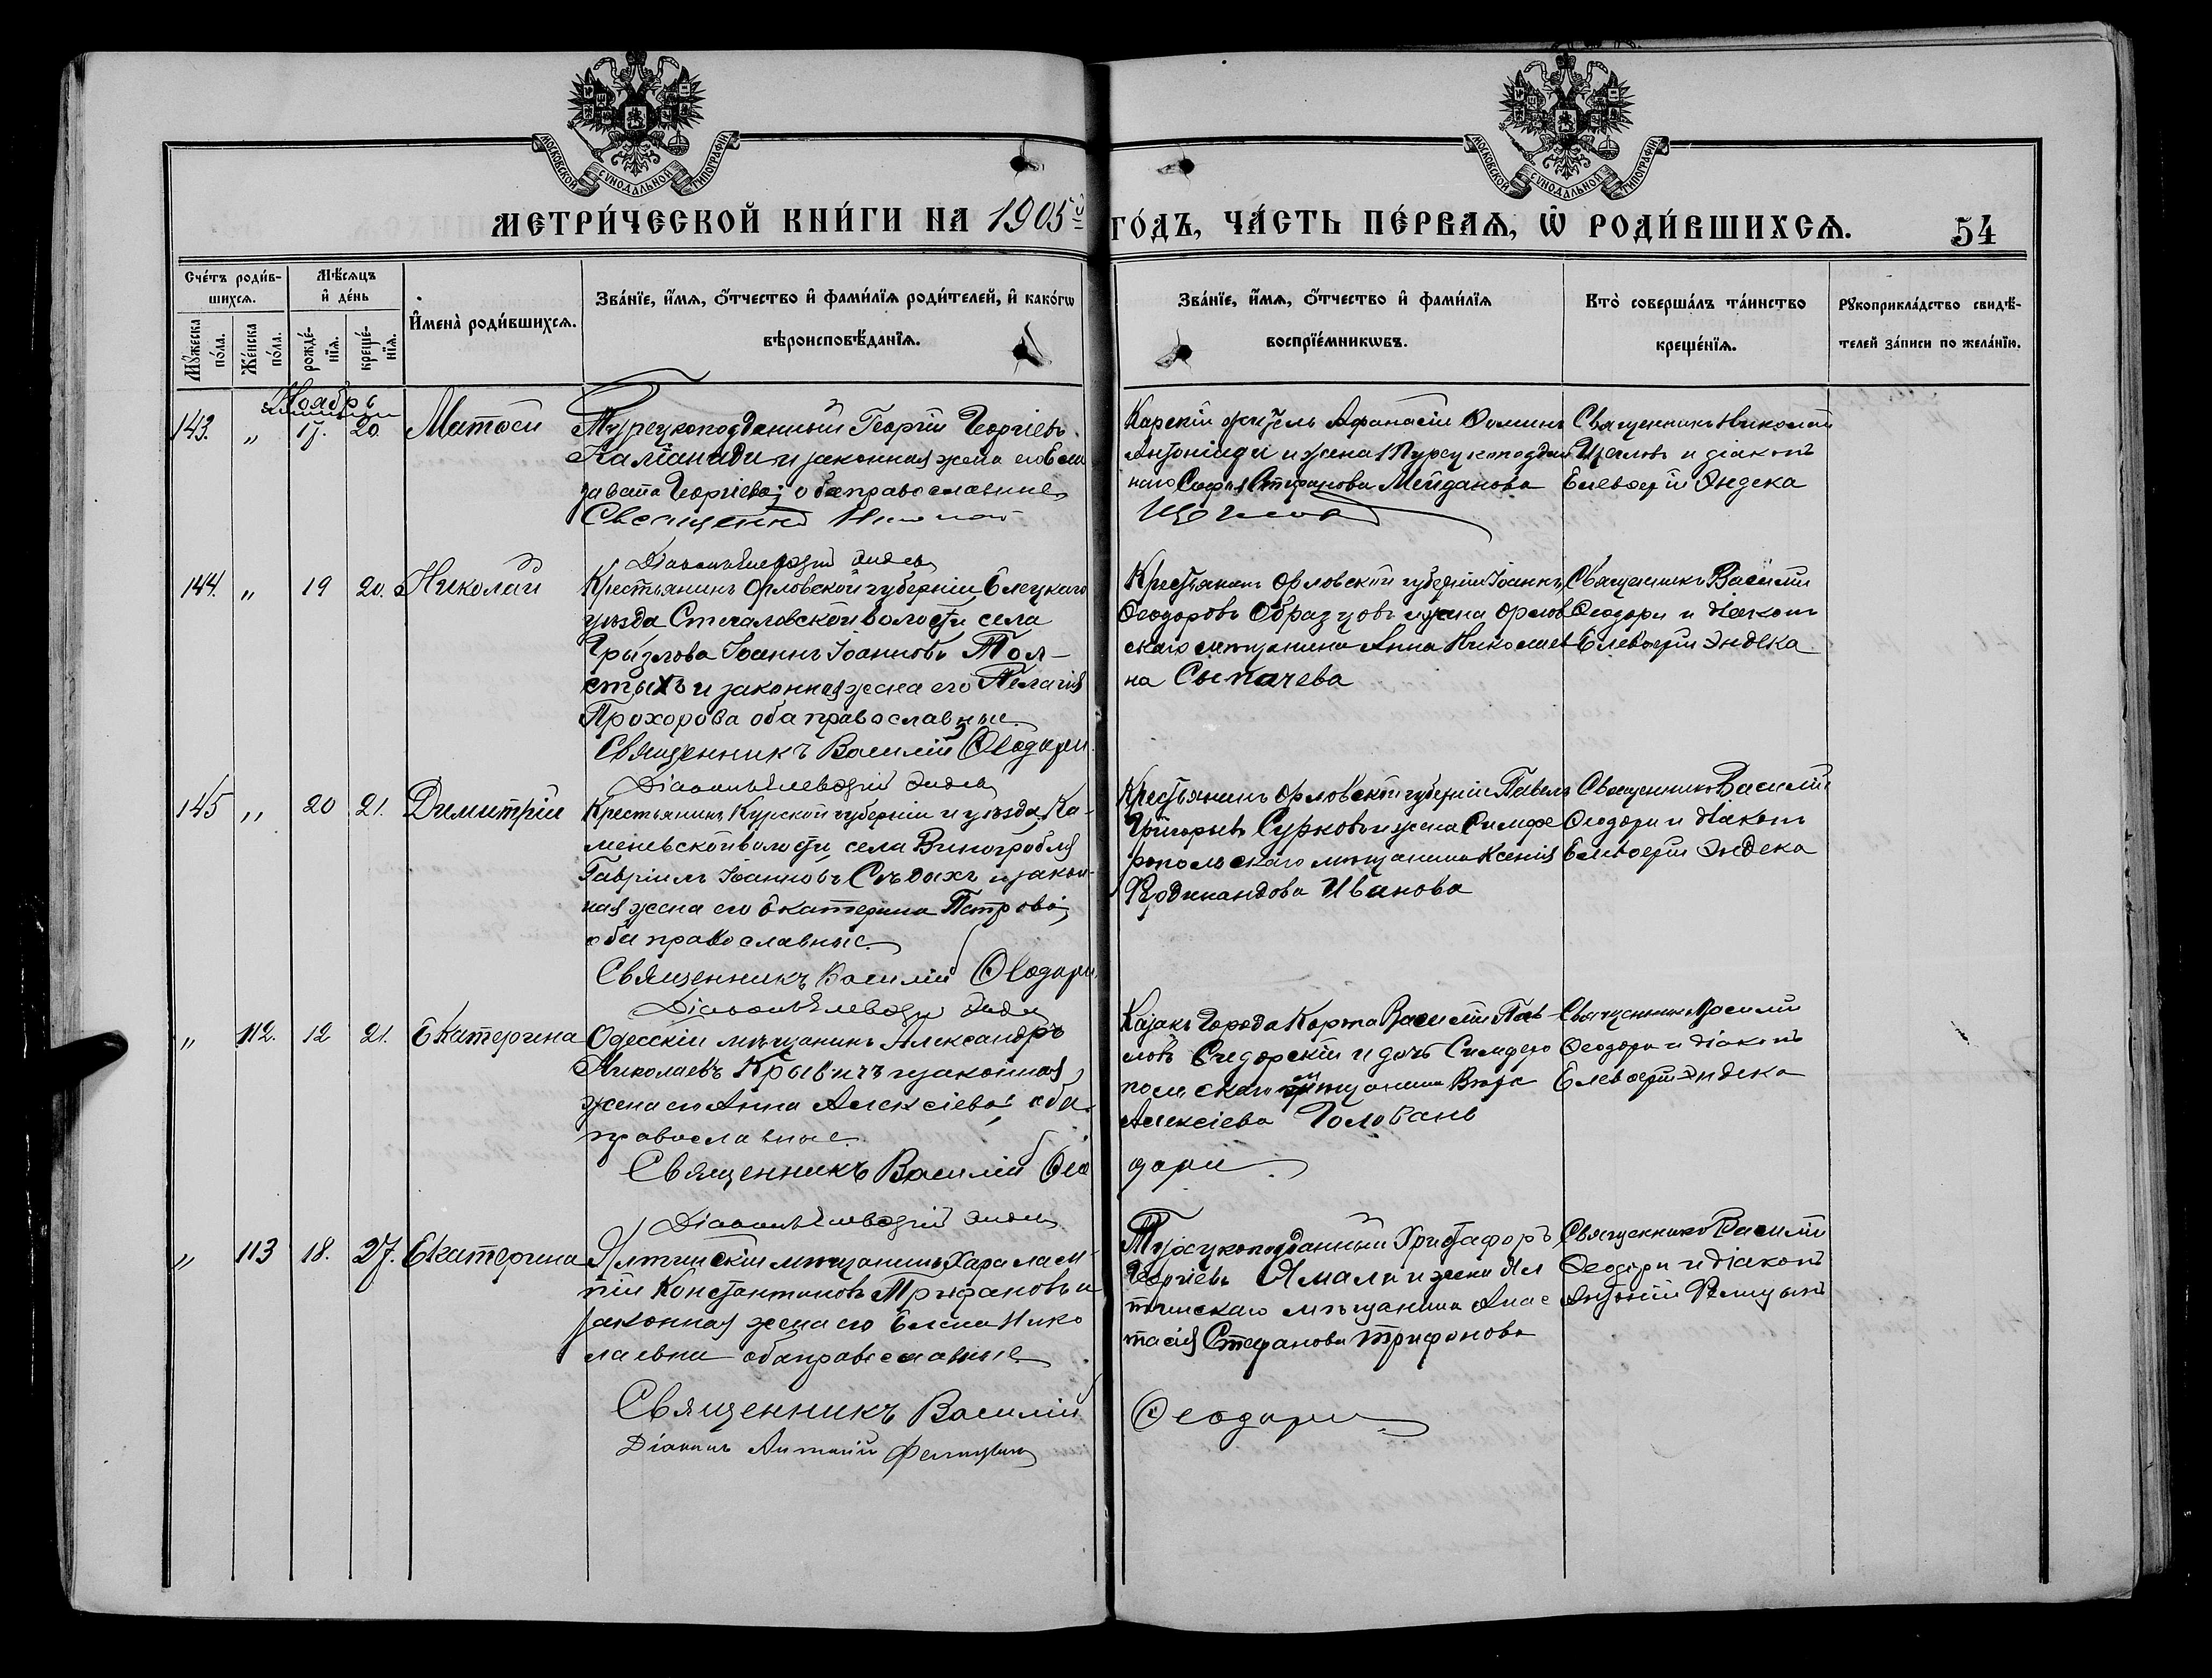 МОСКОВСКОЙ СѴНОДАЛЬНОЙ ТИПОГРАФІИ
МОСКОВСКОЙ СѴНОДАЛЬНОЙ ТИПОГРАФІИ
МЕТРИ́ЧЕСКОЙ КНИ́ГИ НА 1905 го́дъ, ЧА́СТЬ ПЕ́РВАѦ, Ѡ҆ РОДИ́ВШИХСѦ.
54
Сче́тъ роди́в-
шихсѧ.
Мꙋ́жеска по́ла.
Же́нска по́ла.
Мѣ́сѧцъ
и҆ де́нь
рожде́-нїѧ.
креще́-нїѧ.
И҆мена̀ роди́вшихсѧ.
Зва́нїе, и҆́мѧ, ѻ҆́тчество и҆ фами́лїѧ роди́телей, и҆ како́гѡ
вѣроисповѣ́данїѧ.
Зва́нїе, и҆́мѧ, ѻ҆́тчество и҆ фами́лїѧ
воспрїе́мникѡвъ.
Кто̀ соверша́лъ та́инство
креще́нїѧ.
Рꙋкоприкла́дство свидѣ́-
телей за́писи по жела́нїю.
Ноябрь
143. „ 17. 20. Матѳей
Турецкоподданный Георгій Георгіевъ
и законная жена его Ели
завета Георгіева; оба православные
Священникъ Николай
Карскій житель Афанасій Ѳоминъ
и жена Турецкоподдан
наго Софія Стефанова Мейданова
Щегловъ
Священникъ Николай
Щегловъ и діаконъ
Елевѳерій Эндека
Діаконъ Елевѳерій Эндека
144. „ 19 20. Николай
Крестьянинъ Орловской губерніи Елецкаго
уѣзда Стегаловской волости села
Грызлова Іоаннъ Іоанновъ Тол-
стыхъ и законная жена его Пелагія
Прохорова оба православные
Священникъ Василій Ѳеодори.
Крестьянинъ Орловской губерніи Іоаннъ
Ѳеодоровъ Образцовъ и жена Орлов
скаго мѣщанина Анна Николаев
на Сыпачева
Священникъ Василій
Ѳеодори и діаконъ
Елевѳерій Эндека
Діаконъ Елевѳерій Эндека
145 „ 20 21. Димитрій
Крестьянинъ Курской губерніи и уѣзда, Ка-
меневской волости, села Виногробля
Гавріилъ Іоанновъ Сѣдыхъ и закон-
ная жена его Екатерина Петрова;
оба православные.
Священникъ Василій Ѳеодори.
Крестьянинъ Орловской губерніи Павелъ
Григорьевъ Сурковъ и жена Симфе
ропольскаго мѣщанина Ксенія
Фердинандова Иванова
Священникъ Василій
Ѳеодори и діаконъ
Елевѳерій Эндека
Діаконъ Елевѳерій Эндека
„ 112. 12 21. Екатерина
Одесскій мѣщанинъ Александръ
Николаевъ и законная
жена его Анна Алексіева; оба
православные.
Священникъ Василій Ѳео
Казакъ Города Карта Василій Пав-
ловъ и дочь Симферо
польскаго мѣщанина Вѣра
Алексіева Головань
дори
Священникъ Василій
Ѳеодори и діаконъ
Елевѳерій Эндека
Діаконъ Елевѳерій Эндека
„ 113 18. 27. Екатерина
Ялтинскій мѣщанинъ Харалам-
пій Константиновъ Трифановъ и
законная жена его Елена Нико
лаевна оба православные
Священникъ Василій
Діаконъ Антоній
Турецкоподданный Христафоръ
Георгіевъ Ямали и жена Ял
тинскаго мѣщанина Анас
тасія Стефанова Трифонова
Ѳеодори
Священникъ Василій
Ѳеодори и діаконъ
Антоній